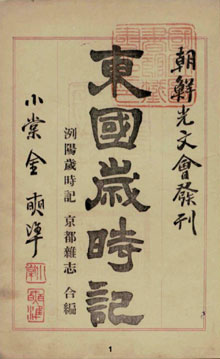 朝鮮光文會發刊
東國歲時記
洌陽歲時記 京都雜志 合編
小棠 金奭準
1